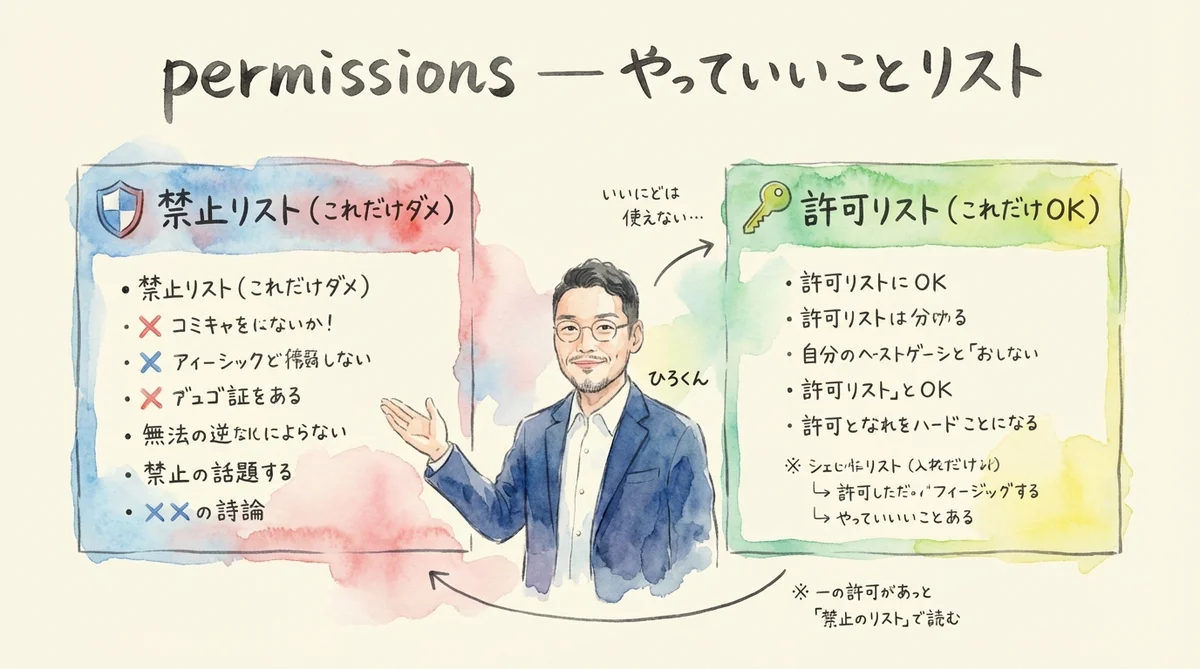 permissions — やっていいことリスト
禁止リスト(これだけダメ)
・禁止リスト(これだけダメ)
・✕ コミキャをにないか!
・✕ アィーシックど しない
・✕ デュゴ証をある
・無法の逆 によらない
・禁止の話題する
・✕✕の詩論
いいにどは
使えない…
ひろくん
許可リスト(これだけOK)
・許可リストに OK
・許可リストは分ける
・自分のベストゲーシと「おしない
・許可リスト」とOK
・許可となれをハードことになる
※ リスト(入れだけ )
↳ 許可しただ フィージッグする
↳ やっていいいことある
※ 一の許可があっと
「禁止のリスト」で読む